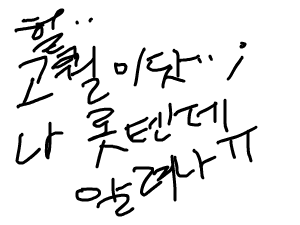 헐..
고퀄이닷..;
나 롯텐데
알려나ㅠ